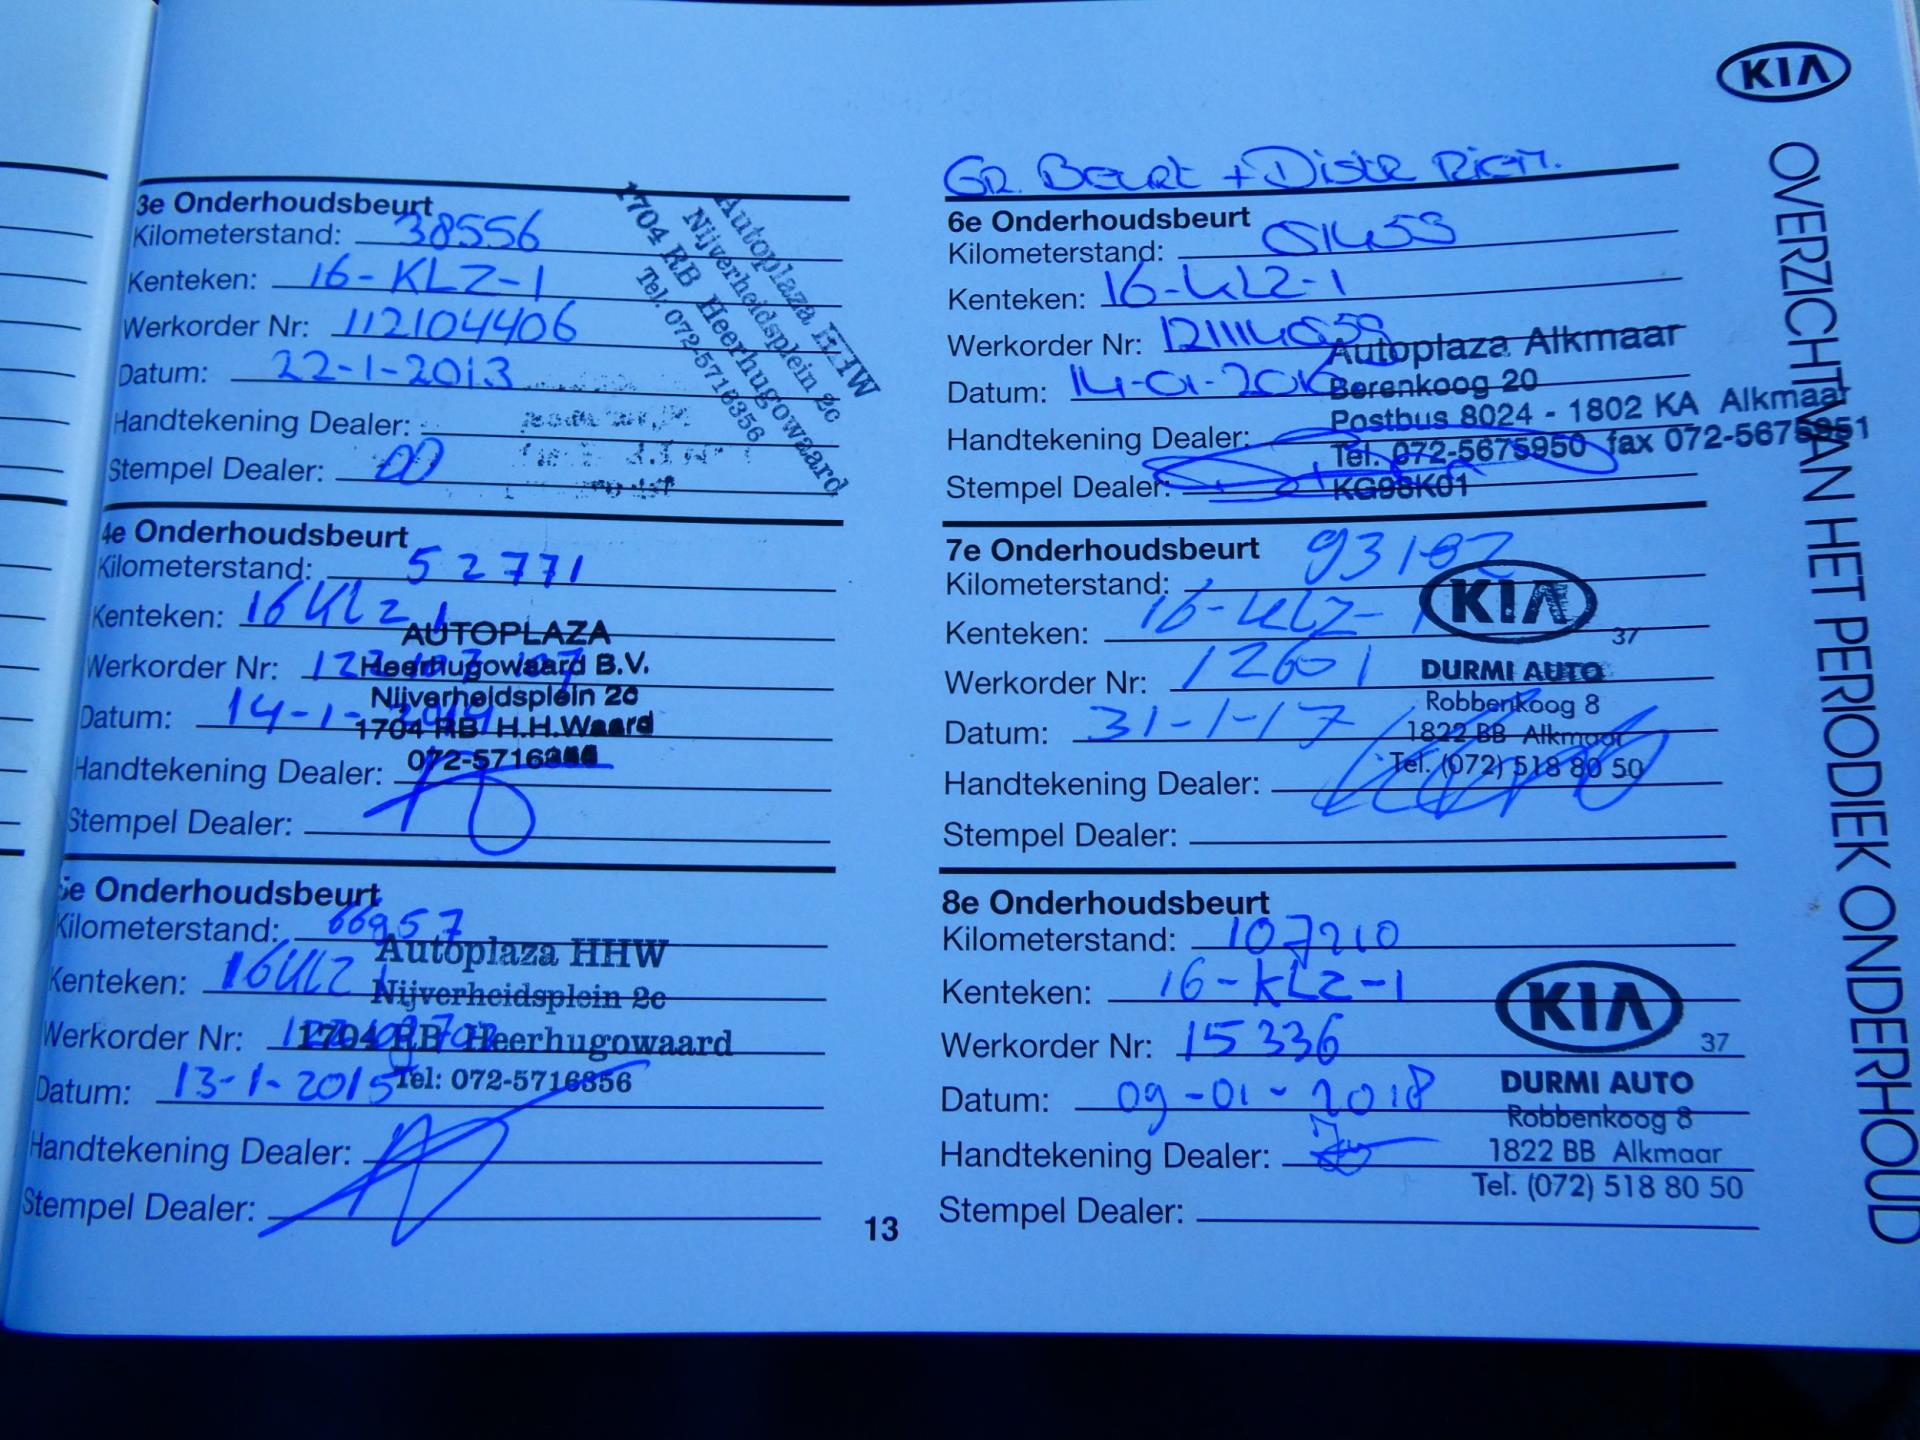 KIA
OVERZICHT VAN HET PERIODIEK ONDERHOUD
3e Onderhoudsbeurt
Kilometerstand: 38556
Kenteken: 16-KLZ-1
Werkorder Nr: 112104406
Datum: 22-1-2013
Handtekening Dealer:
Stempel Dealer:
Autoplaza HHW
Nijverheidsplein 2c
1704 RB Heerhugowaard
Tel. 072-5716356
4e Onderhoudsbeurt
Kilometerstand: 52771
Kenteken: 16KLZ1
Werkorder Nr:
Datum: 14-1-2014
Handtekening Dealer:
Stempel Dealer:
AUTOPLAZA
Heerhugowaard B.V.
Nijverheidsplein 2c
1704 RB H.H.Waard
5e Onderhoudsbeurt
Kilometerstand: 66957
Kenteken: 16KLZ1
Werkorder Nr:
Datum: 13-1-2015
Handtekening Dealer:
Stempel Dealer:
Autoplaza HHW
Nijverheidsplein 2c
1704 RB Heerhugowaard
Tel: 072-5716356
13
Gr. Beurt + Distr Riem.
6e Onderhoudsbeurt
Kilometerstand:
Kenteken: 16-KLZ-1
Werkorder Nr:
Datum: 14-01-2016
Handtekening Dealer:
Stempel Dealer:
Autoplaza Alkmaar
Berenkoog 20
Postbus 8024 - 1802 KA Alkmaar
Tel. 072-5675950 fax 072-5675951
KG98K01
7e Onderhoudsbeurt
Kilometerstand: 93182
Kenteken: 16-KLZ-1
Werkorder Nr: 12601
Datum: 31-1-17
Handtekening Dealer:
Stempel Dealer:
KIA
37
DURMI AUTO
Robbenkoog 8
1822 BB Alkmaar
Tel. (072) 518 80 50
8e Onderhoudsbeurt
Kilometerstand: 107210
Kenteken: 16-KLZ-1
Werkorder Nr: 15336
Datum: 09-01-2018
Handtekening Dealer:
Stempel Dealer:
KIA
37
DURMI AUTO
Robbenkoog 8
1822 BB Alkmaar
Tel. (072) 518 80 50